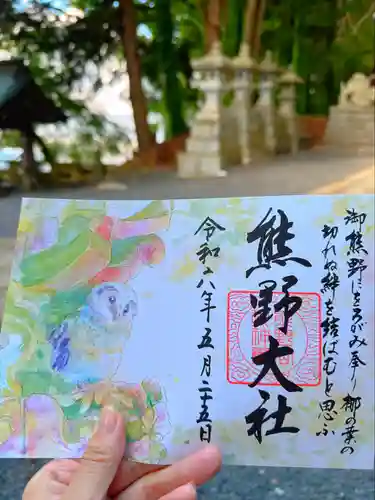 御熊野にをろがみ奉り梛の葉の
切れぬ絆を結ばむと思ふ
熊野大社
令和六年五月二十五日